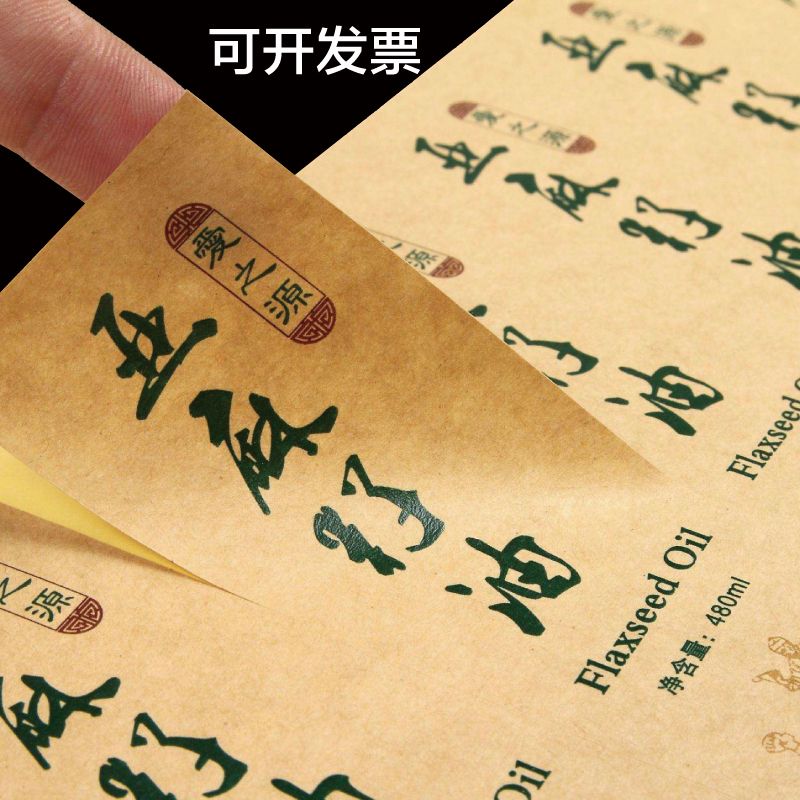 可开发票
愛之源
亚麻籽油
Flaxseed Oil
净含量：480ml
愛之源
亚麻籽油
愛之源
亚麻籽油
源
籽油
Flaxseed
之源
麻籽油
Oil